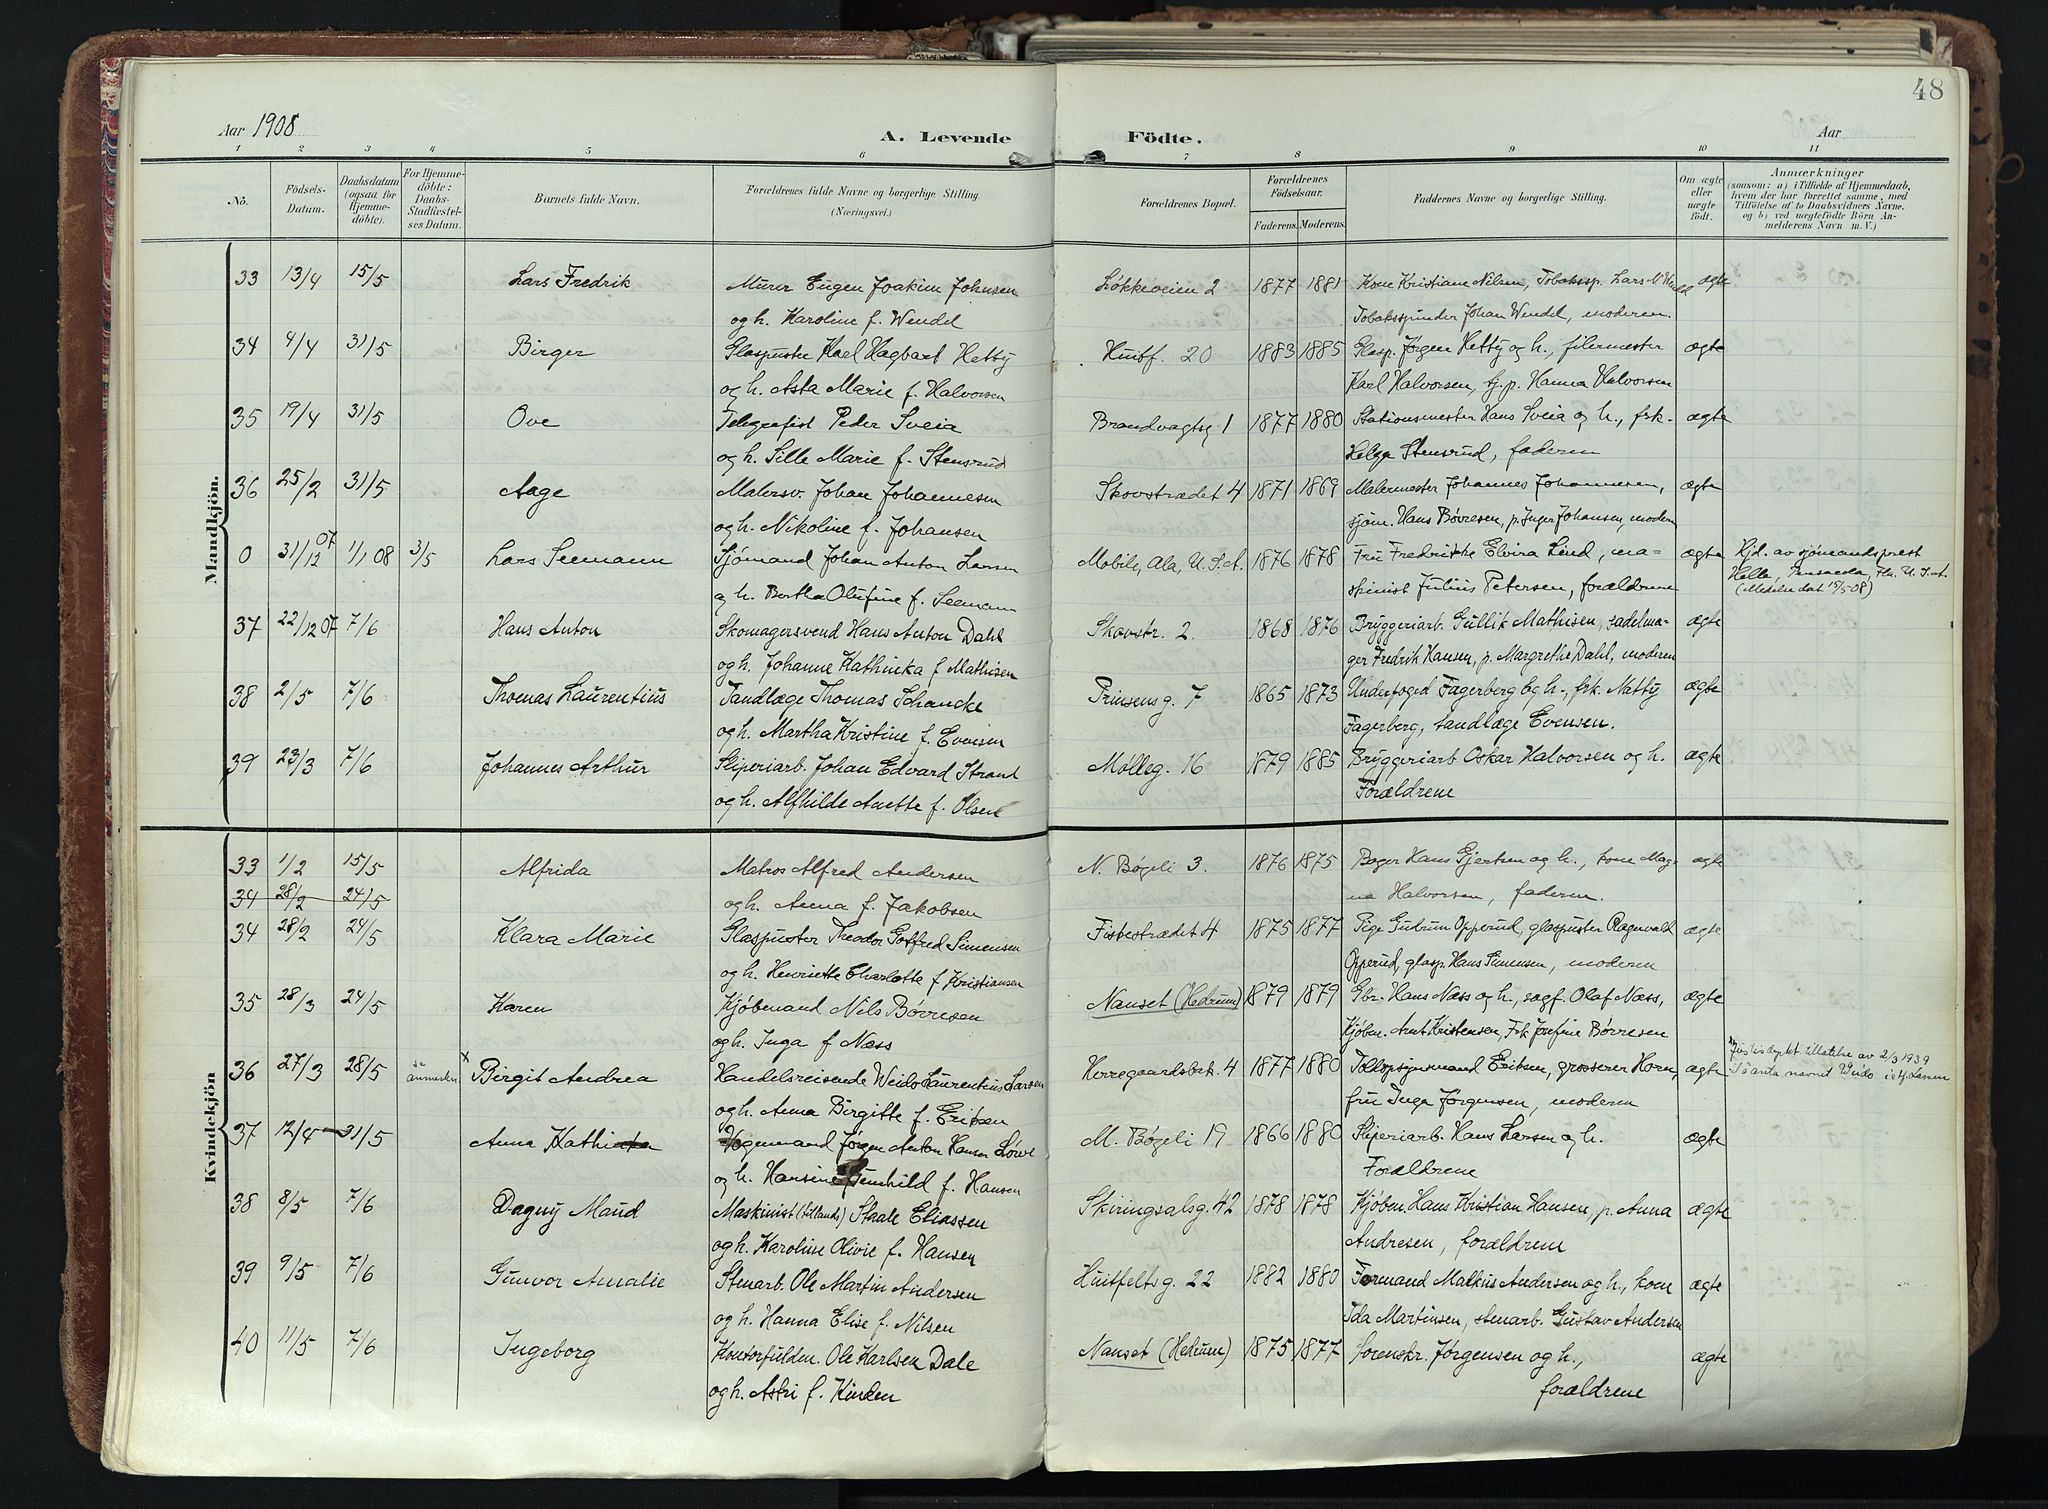 48
Aar 1908
A. Levende Födte.
Aar
1 2 3 4 5 6 7 8 9 10 11
Nö.
Födsels-
Datum.
Daabsdatum
(ogsaa for
Hjemme-
döbte).
For Hjemme-
döbte:
Daabs-
Stadfæstel-
ses Datum.
Barnets fulde Navn.
Forældrenes fulde Navne og borgerlige Stilling.
(Næringsvei.)
Forældrenes Bopæl.
Forældrenes
Födselsaar.
Faderens. Moderens.
Faddernes Navne og borgerlige Stilling.
Om ægte
eller
uægte
födt.
Anmærkninger
(saasom: a) i Tilfælde af Hjemmedaab,
hvem der har forrettet samme, med
Tilföielse af to Daabsvidners Navne.
og b) ved uægtefödte Börn An-
melderens Navn m. V.)
Mandkjön.
33 13/4 15/5 Lars Fredrik Murer Eugen Joakim Johnsen Løkkeveien 2 1877 1881 Kone Kristiane Nilsen, Tobakssp. Lars ægte
og h. Karoline f. Wendel Tobaksspinder Johan Wendel, moderen.
34 4/4 31/5 Birger Glaspuster Karl Hagbart Hetty Huitf. 20 1883 1885 Glasp. Jørgen Hetty og h., filermester ægte
og h. Asta Marie f. Halvorsen Karl Halvorsen, tj. p. Hanna Halvorsen
35 19/4 31/5 Ove Telegrafist Peder Sveia Brandvagtsg 1 1877 1880 Stationsmester Hans Sveia og h., frk. ægte
og h. Sille Marie f. Stensrud Helga Stensrud, faderen
36 25/2 31/5 Aage Malersv. Johan Johannesen Skovstrædet 4 1871 1869 Malermester Johannes Johannesen, ægte
og h. Nikoline f. Johansen sjøm. Hans Børresen, p. Inger Johansen, modern
0 31/12 07 1/1 08 3/5 Lars Seemann Sjømand Johan Anton Larsen Mobile, Ala, U.S.A. 1876 1878 Fru Fredrikke Elvira Lind, ma- ægte Hjd. av sjømandsprest
og h. Bertha Olufine f. Seemann skinist Julius Petersen, forældrene Helle, Pensacola, Fla. U.S.A.
(Medelse dat 15/5 08)
37 22/12 07 7/6 Hans Anton Skomagersvend Hans Anton Dahl Skovstr. 2. 1868 1876 Bryggeriarb. Gullik Mathisen, sadelma- ægte
og h. Johanne Kathinka f Mathisen ger Fredrik Hansen, p. Margrethe Dahl, moderen
38 2/5 7/6 Thomas Laurentius Tandlæge Thomas Schancke Prinsensg. 7 1865 1873 Underfoged Fagerberg og h., frk. Netty ægte
og h. Martha Kristine f. Evensen Fagerberg, tandlæge Evensen.
39 23/3 7/6 Johannes Arthur Sliperiarb. Johan Edvard Strand Mølleg. 16 1879 1885 Bryggeriarb Oskar Halvorsen og h. ægte
og h. Alfhilde Anette f. Olsen Forældrene
Kvindekjön
33 1/2 15/5 Alfrida Matros Alfred Andersen N. Bøgeli 3. 1876 1875 Bager Hans Gjertsen og h., kone Mag- ægte
34 28/2 24/5 og h. Anna f. Jakobsen na Halvorsen, faderen.
34 28/2 24/5 Klara Marie Glaspuster Theodor Gotfred Simensen Fiskestrædet 4 1875 1877 Pige Gudrun Opperud, glaspuster Ragnvald ægte
og h. Henriette Charlotte f Kristiansen Opperud, glasp. Hans Simensen, moderen
35 28/3 24/5 Karen Kjøbmand Nils Børresen Nanset (Hedrum) 1879 1879 Gbr. Hans Næss og h., sagf. Olaf Næss, ægte
og h. Inga f Næss Kjøbm. Arnt Kristensen, Frk Josefine Børresen
36 27/3 28/5 se anmerkn x Birgit Andrea Handelsreisende Weido Laurentius Larsen Herregaardsbk. 4 1877 1880 Toldopsynsmand Eriksen, grosserer Horn, ægte x Justisdepkt tillatelse av 2/3 1939
og h. Anna Birgitte f. Eriksen fru Inga Jørgensen, moderen til å anta navnet Weido istf. Larsen
37 12/4 31/5 Anna Kathinka Vognmand Jørgen Anton Hansen Løwe M. Bøgeli 19 1866 1880 Sliperiarb. Hans Larsen og h. ægte
og h. Hansine Gunhild f. Hansen Forældrene
38 8/5 7/6 Dagny Maud Maskinist (tillands) Staale Eliassen Skiringsalsg. 42 1878 1878 Kjøbm. Hans Kristian Hansen, p. Anna ægte
og h. Karoline Olivie f. Hansen Andresen, forældrene
39 9/5 7/6 Gunvor Amalie Stenarb. Ole Martin Andersen Huitfeltsg. 22 1882 1880 Formand Matkus Andersen og h., kone ægte
og h. Hanna Elise f. Nilsen Ida Martinsen, stenarb. Gustav Andersen
40 11/5 7/6 Ingeborg Kontorfuldm. Ole Karlsen Dale Nanset (Hedrum) 1875 1877 Sorenskr. Jørgensen og h., ægte
og h. Astri f. Kinken forældrene